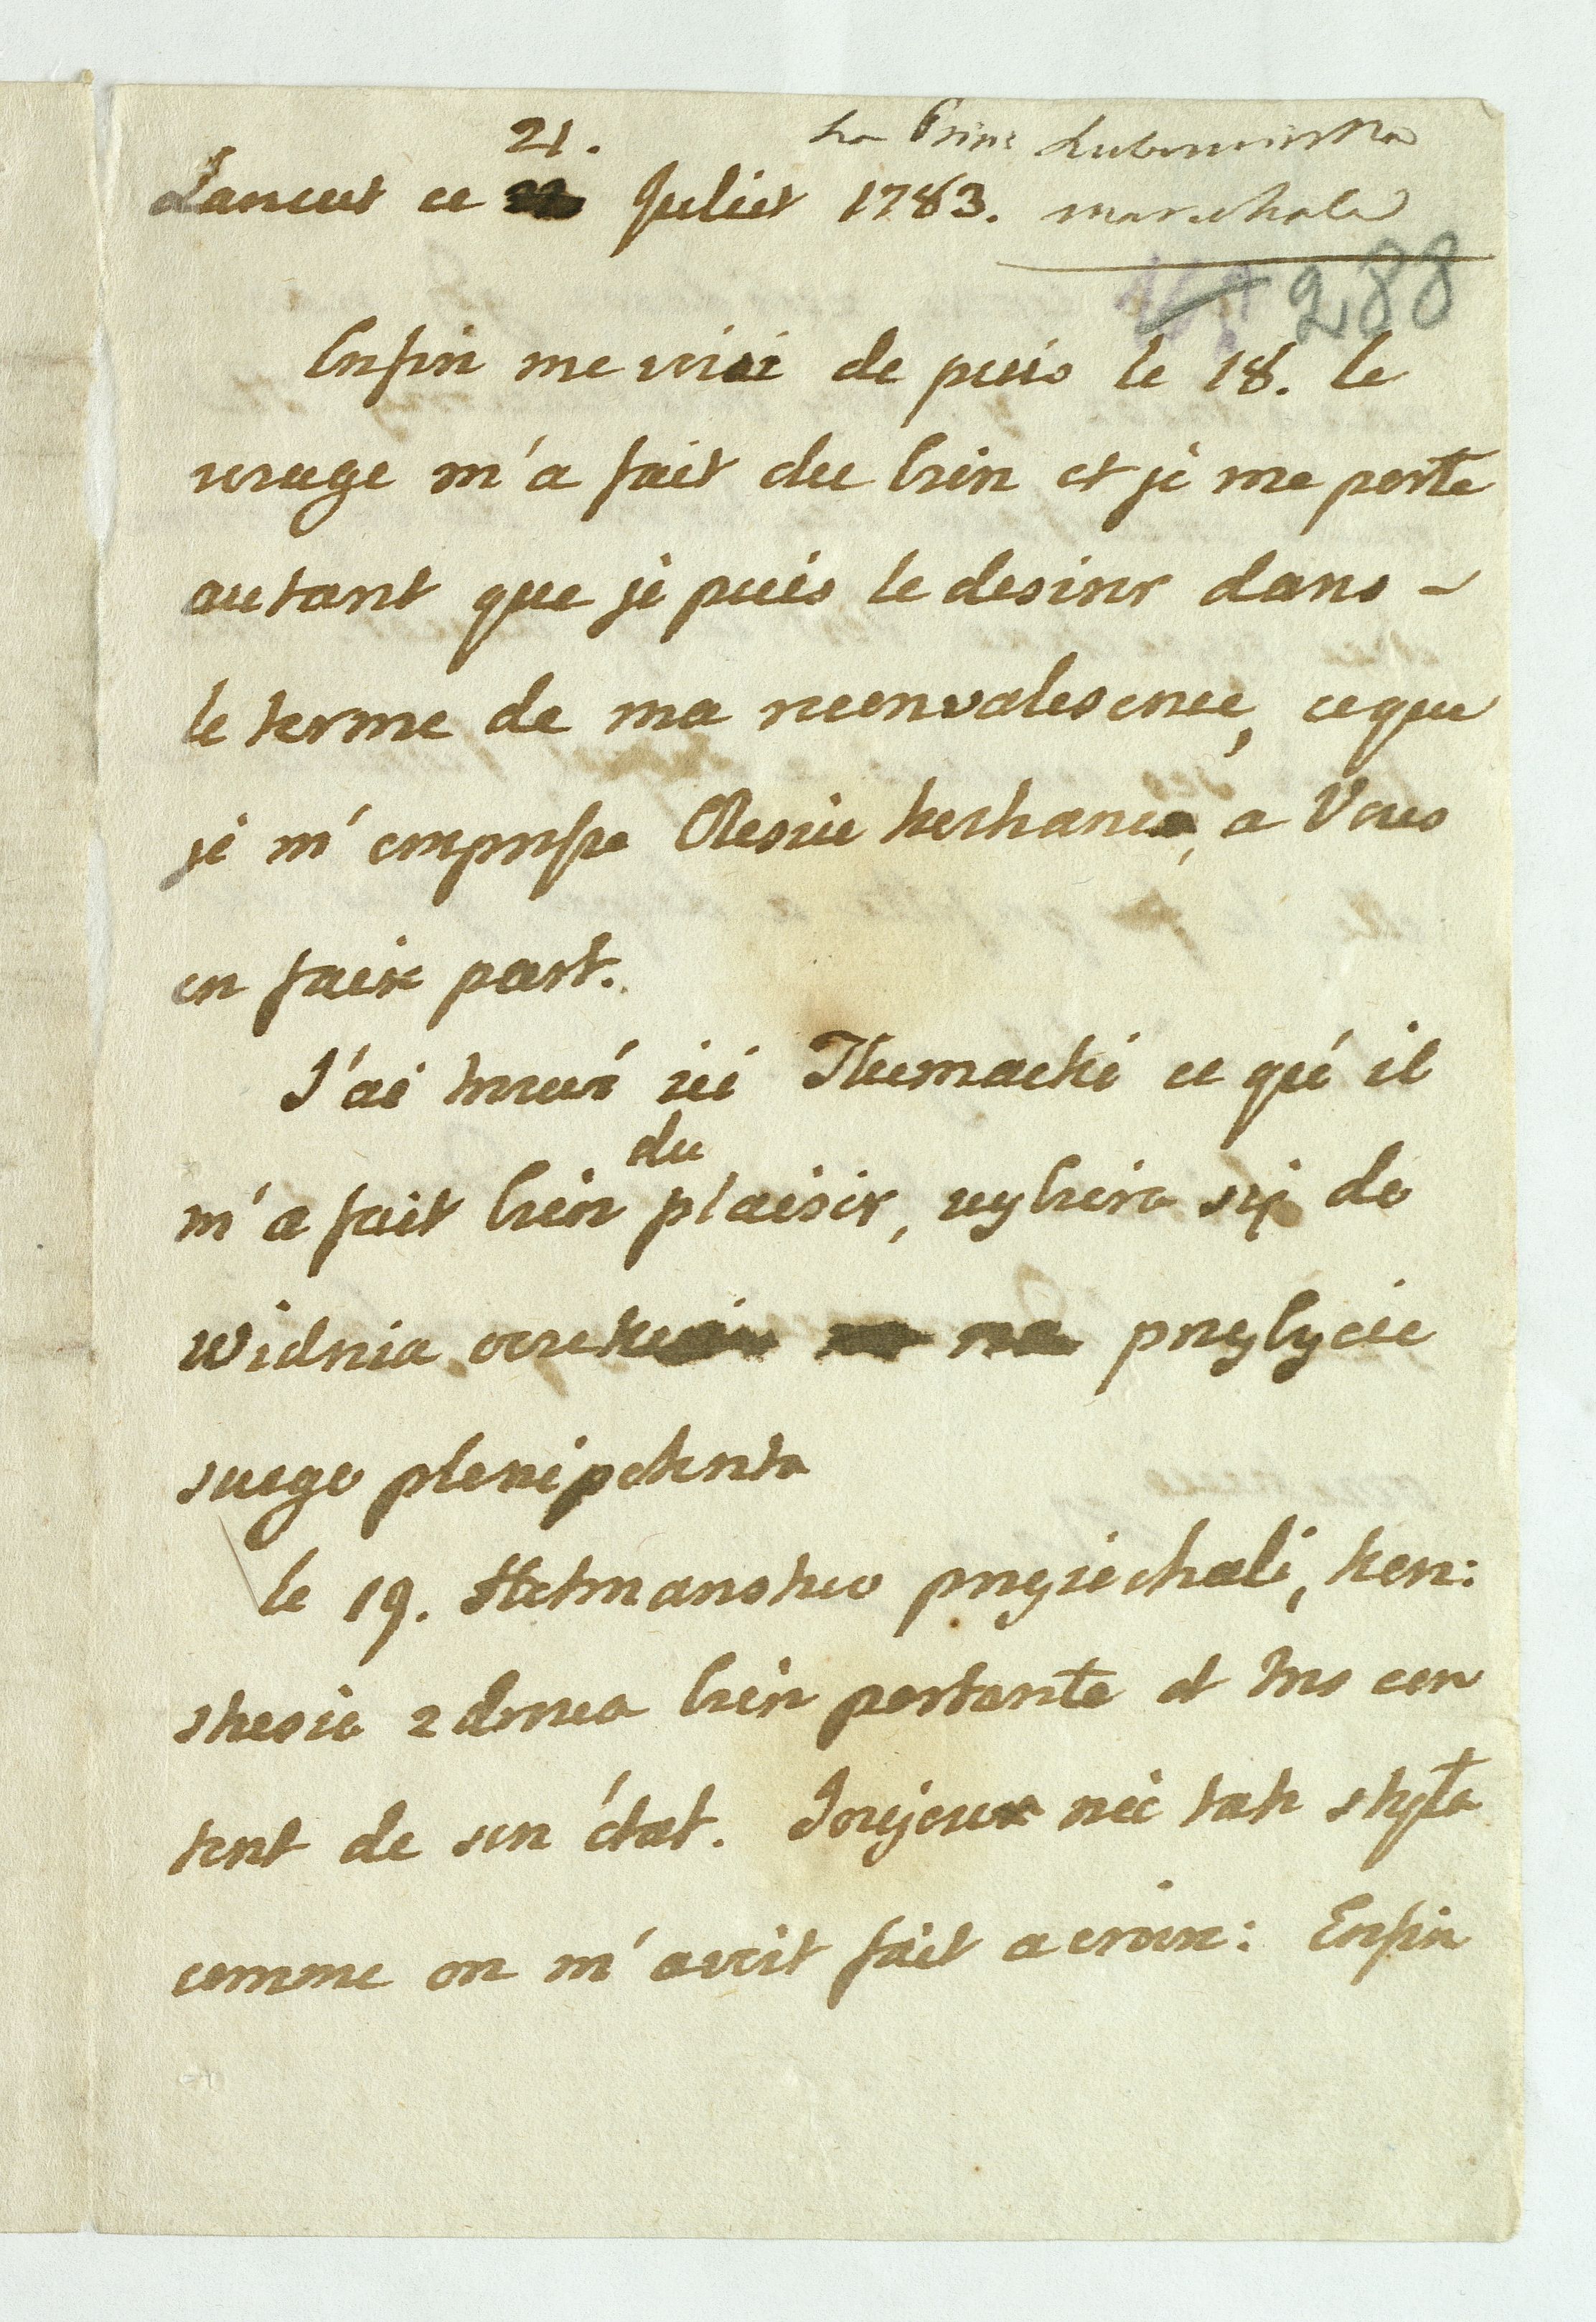 La Prin: Lubomirska
21.
Lancut ce Juliet 1783. marechale
288
Enfin me voici de puis le 18. le
voiage m'a fait du bien et je me porte
autant que je puis le desirer dans -
le terme de ma reconvalescence, ce que
je m'empresse Olesiu kochany, a Vous
en faire part.
J'ai trouvé ici Tlumacki ce qu'il
du
m'a fait bien plaisir, wybiera się do
Widnia oczekuie na przybycie
swego plenipotenta
le 19. Hetmanstwo przyiechali, Kon:
stusia zdrowa bien portante et tres con
tent de son état. Joujoux nie tak skąpa
comme on m'avoit fait acroire: Enfin